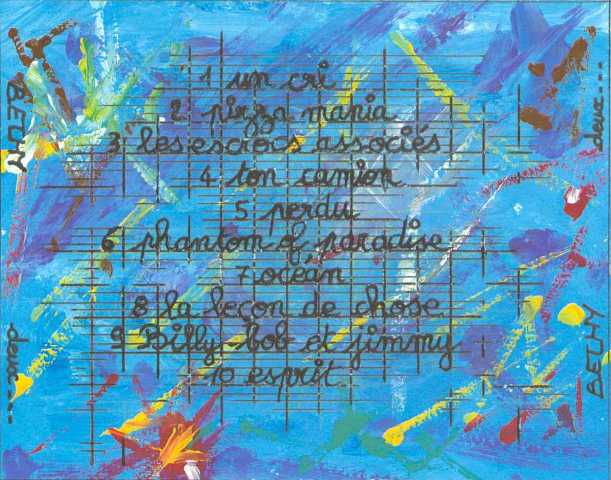 1 un cri
2 pizza mania
3 les escrocs associés
4 ton camion
5 perdu
6 phantom of paradise
7 océan
8 la leçon de chose
9 Billy-bob et jimmy
10 esprit
BETHY
deux---
deux---
BETHY